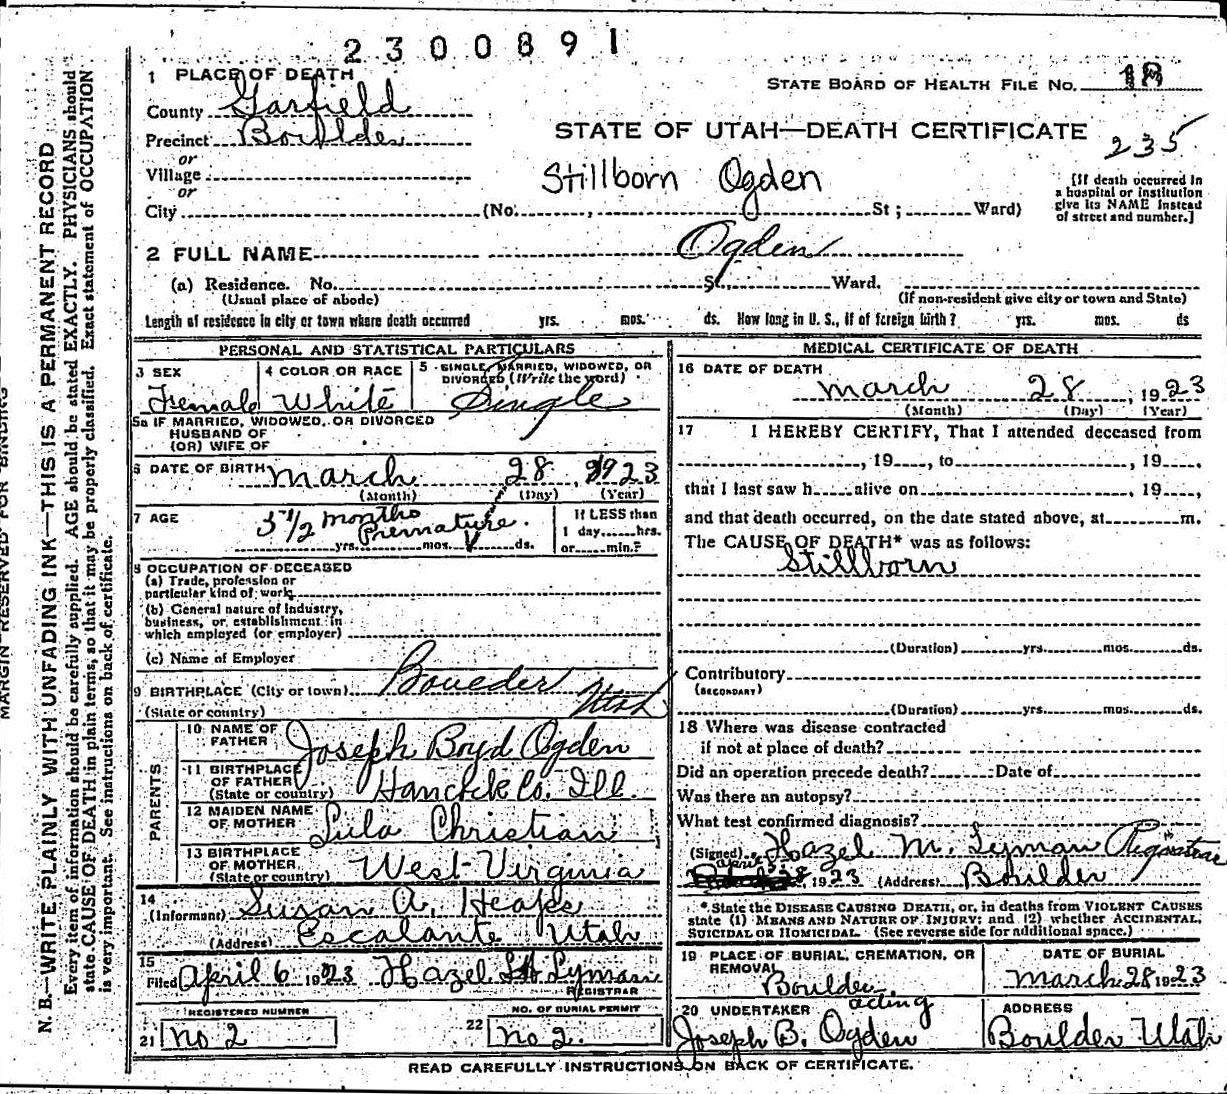 2300891
1 PLACE OF DEATH
STATE BOARD OF HEALTH FILE NO. 18
County Garfield
Precinct Boulder
STATE OF UTAH—DEATH CERTIFICATE
235
or
Village
Stillborn Ogden
[If death occurred in a hospital or institution give its NAME instead of street and number.]
or
City (No. , St; Ward)
2 FULL NAME Ogden
(a) Residence. No. St., Ward.
(Usual place of abode) (If non-resident give city or town and State)
Length of residence in city or town where death occurred yrs. mos. ds. How long in U. S., if of foreign birth? yrs. mos. ds
PERSONAL AND STATISTICAL PARTICULARS
3 SEX 4 COLOR OR RACE 5 SINGLE, MARRIED, WIDOWED, OR DIVORCED (Write the word)
Female White Single
5a IF MARRIED, WIDOWED, OR DIVORCED
HUSBAND OF
(OR) WIFE OF
6 DATE OF BIRTH March 28, 1923
(Month) (Day) (Year)
7 AGE 5 1/2 months Premature.
yrs. mos. ds.
If LESS than
1 day, hrs.
or min.?
8 OCCUPATION OF DECEASED
(a) Trade, profession or
particular kind of work
(b) General nature of industry,
business, or establishment in
which employed (or employer)
(c) Name of Employer
9 BIRTHPLACE (City or town) Boueder
(State or country) Utah
PARENTS
10 NAME OF FATHER Joseph Boyd Ogden
11 BIRTHPLACE OF FATHER (State or country) Hancock Co. Ill.
12 MAIDEN NAME OF MOTHER Lula Christian
13 BIRTHPLACE OF MOTHER (State or country) West-Virginia
14
(Informant) Susan A. Heaps
(Address) Escalante Utah
15
Filed April 6 1923 Hazel M. Lyman
REGISTRAR
REGISTERED NUMBER
21 No 2
NO. OF BURIAL PERMIT
22 No 2.
MEDICAL CERTIFICATE OF DEATH
16 DATE OF DEATH
March 28, 1923
(Month) (Day) (Year)
17 I HEREBY CERTIFY, That I attended deceased from
, 19 , to , 19 ,
that I last saw h alive on , 19 ,
and that death occurred, on the date stated above, at m.
The CAUSE OF DEATH* was as follows:
Stillborn
(Duration) yrs. mos. ds.
Contributory
(SECONDARY)
(Duration) yrs. mos. ds.
18 Where was disease contracted
if not at place of death?
Did an operation precede death? Date of
Was there an autopsy?
What test confirmed diagnosis?
(Signed) Hazel M. Lyman Registrar
1923 (Address) Boulder
* State the DISEASE CAUSING DEATH, or, in deaths from VIOLENT CAUSES
state (1) MEANS AND NATURE OF INJURY; and (2) whether ACCIDENTAL,
SUICIDAL OR HOMICIDAL. (See reverse side for additional space.)
19 PLACE OF BURIAL, CREMATION, OR REMOVAL
Boulder
DATE OF BURIAL
March 28 1923
20 UNDERTAKER acting
Joseph B. Ogden
ADDRESS
Boulder Utah
READ CAREFULLY INSTRUCTIONS ON BACK OF CERTIFICATE.
MARGIN RESERVED FOR BINDING
N. B.—WRITE PLAINLY WITH UNFADING INK—THIS IS A PERMANENT RECORD
Every item of information should be carefully supplied. AGE should be stated EXACTLY. PHYSICIANS should
state CAUSE OF DEATH in plain terms, so that it may be properly classified. Exact statement of OCCUPATION
is very important. See instructions on back of certificate.